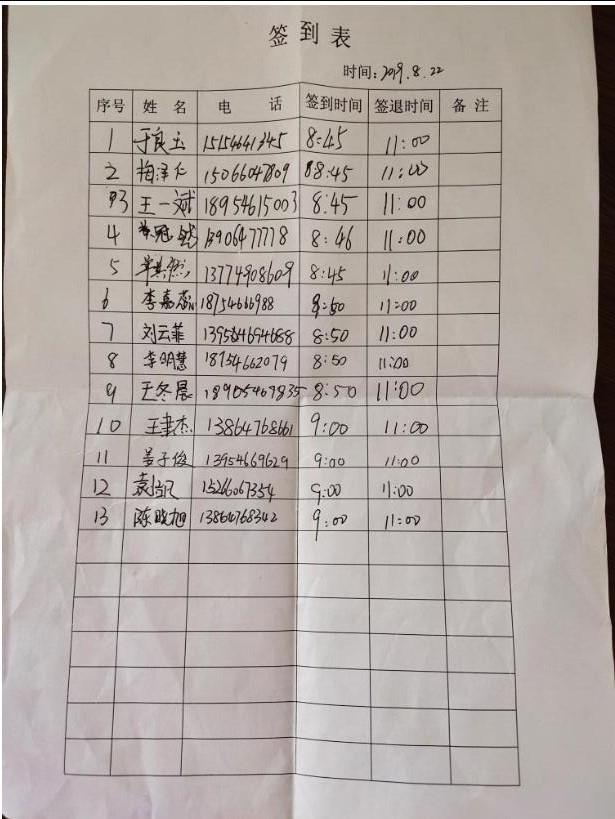 签到表
时间：2019.8.22
序号 姓名 电话 签到时间 签退时间 备注
1 于良玉 15154641345 8:45 11:00
2 梅泽仁 15066047809 8:45 11:00
3 王一斌 18954615003 8:45 11:00
4 13906477778 8:46 11:00
5 13774908609 8:45 11:00
6 李嘉 18754666988 8:50 11:00
7 刘云菲 8:50 11:00
8 李明慧 18754662079 8:50 11:00
9 王冬晨 8:50 11:00
10 王聿杰 13864768661 9:00 11:00
11 晏子俊 13954669629 9:00 11:00
12 15266067354 9:00 11:00
13 陈晓旭 13864768342 9:00 11:00